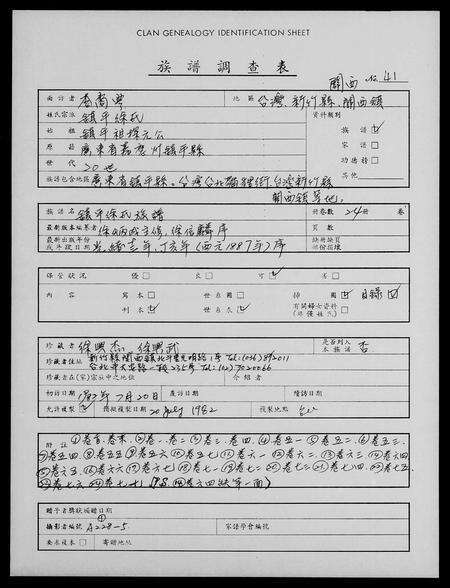 CLAN GENEALOGY IDENTIFICATION SHEET
族譜調查表
關西 No. 41
面訪者 喬衡典 地區 台灣新竹縣關西鎮
姓氏宗派 鎮平徐氏 資料類別
始祖 鎮平祖探元公 族譜 ☑
原籍 廣東省嘉應州鎮平縣 家譜 □
世代 20世 功德榜 □
其他
族譜包含地區 廣東省鎮平縣、台灣台北 台灣新竹縣
關西鎮等地.
族譜名 鎮平徐氏族譜 冊卷數 24冊 卷
最新版本編纂者 序 頁數
最新出版年份或年撥日期 光緒 年、丁亥年 (西元1887年) 序 缺冊缺頁部份損壞
保管狀況 優 □ 良 □ 可 ☑ 差 □
內容 寫本 □ 世系圖 □ 排圖 ☑ 目錄 ☑
刊本 ☑ 世系表 ☑ 有關婦女資料(非僅姓氏) □
珍藏者 徐興杰、徐興武 是否列入本族譜 否
珍藏者住址 新竹縣關西鎮北斗里光明路1号 Tel:(036)872011
台北市大安路一段235号 Tel:(02)7020066
珍藏者在(家)宗叢中之地位 介紹者
初訪日期 1982年7月20日 產訪日期 隨訪日期
允許複製 ☑ 攝縮複製日期 20 July 1982 複製地點
附註 ①卷首.卷末.②卷一.卷二③卷三.卷四.④卷五一⑤卷五二.⑥卷五三.
⑦卷五四⑧卷五五⑨卷五六⑩卷五七⑪卷六一⑫卷六二.⑬卷六三.⑭卷六四
⑮卷六五.⑯卷六六⑰卷六七⑱卷七一⑲卷七二⑳卷七三㉑卷七四.㉒卷七五
㉓卷七六.㉔卷七七 (P.S. ⑭卷六四缺字一面)
贈予者獎狀頒贈日期
攝影者編號 A228-5 家譜學會編號
要求複本 □ 寄贈地址